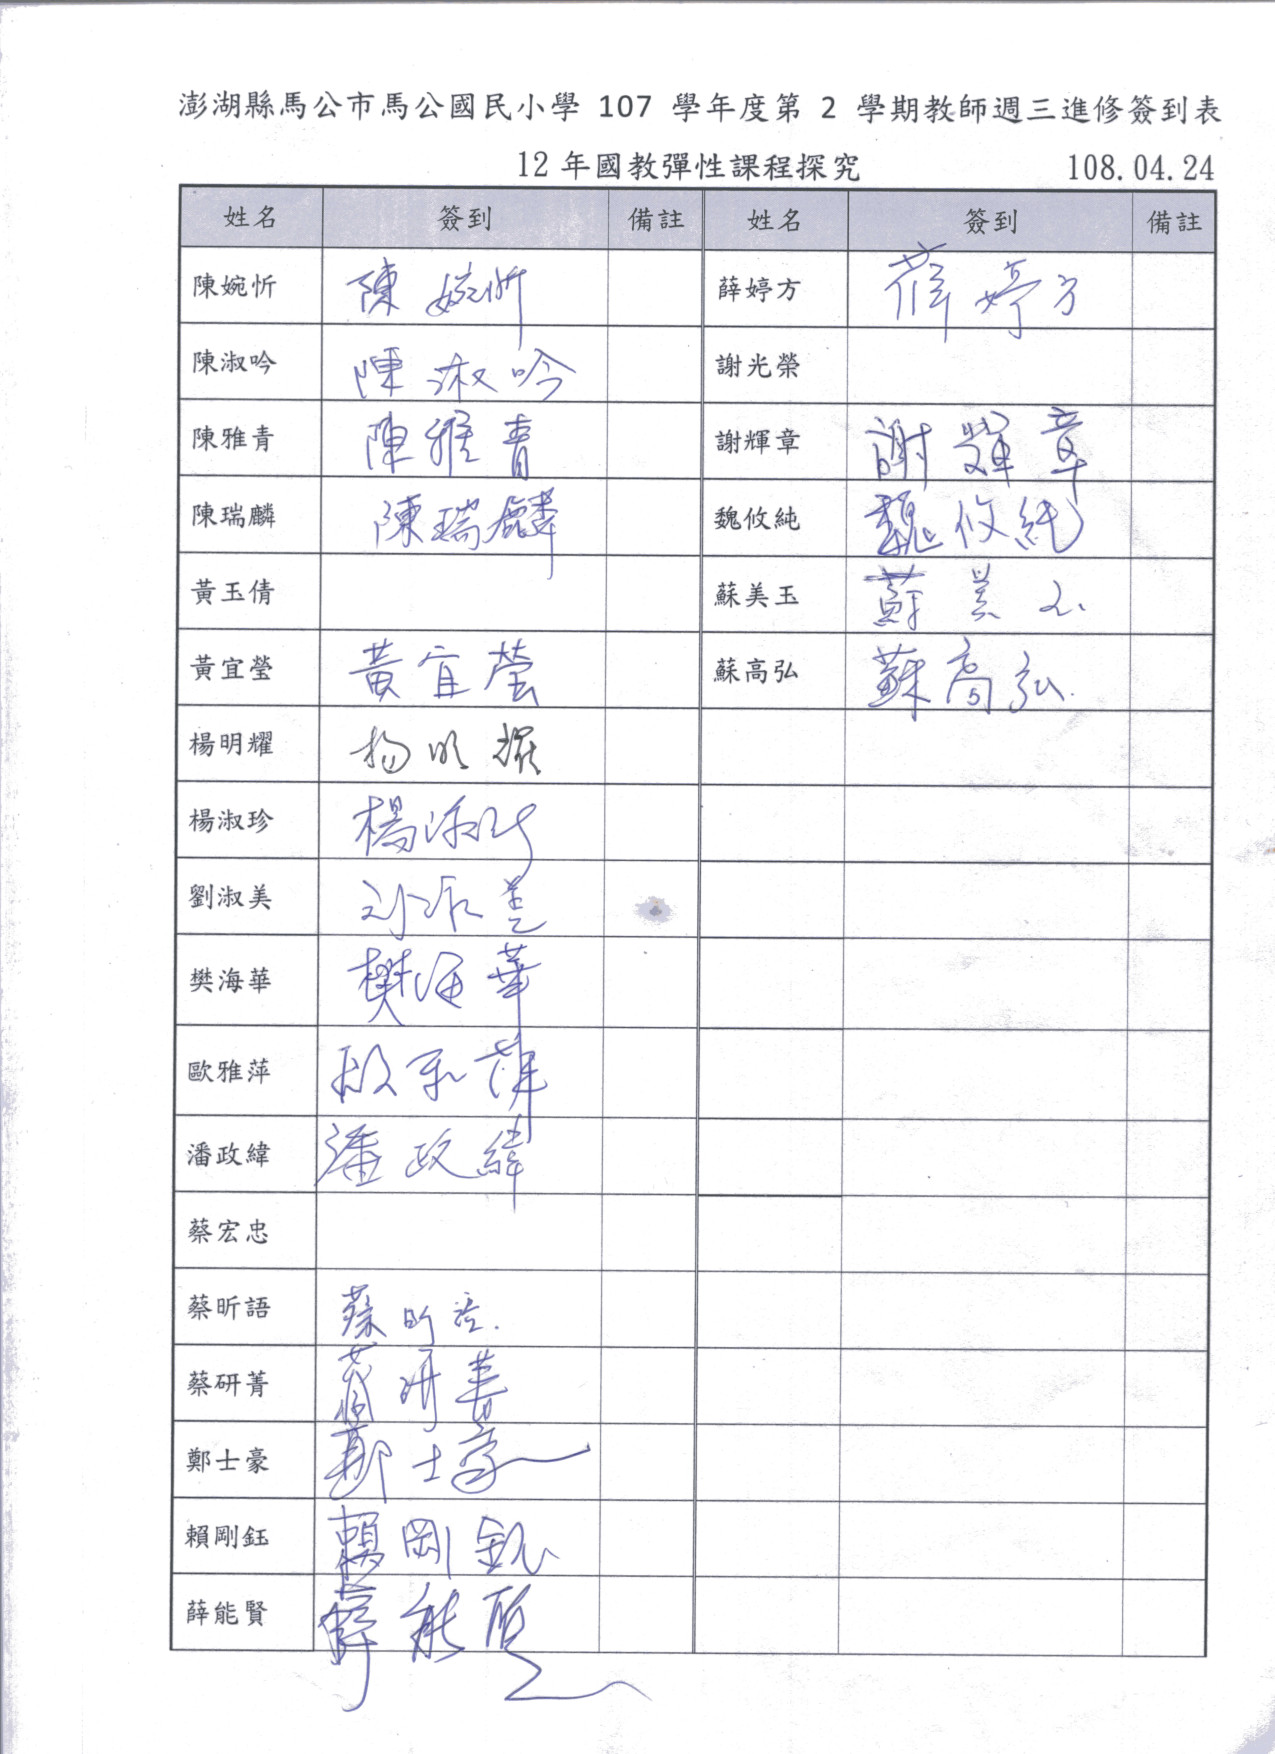 澎湖縣馬公市馬公國民小學 107 學年度第 2 學期教師週三進修簽到表
12 年國教彈性課程探究 108.04.24
姓名 簽到 備註 姓名 簽到 備註
陳婉忻 陳婉忻 薛婷方 薛婷方
陳淑吟 陳淑吟 謝光榮
陳雅青 陳雅青 謝輝章 謝輝章
陳瑞麟 陳瑞麟 魏攸純 魏攸純
黃玉倩 蘇美玉 蘇美玉
黃宜瑩 黃宜瑩 蘇高弘 蘇高弘
楊明耀 杨明耀
楊淑珍 楊淑珍
劉淑美 刘淑美
樊海華 樊海華
歐雅萍 欧雅萍
潘政緯 潘政緯
蔡宏忠
蔡昕語 蔡昕語.
蔡研菁 蔡研菁
鄭士豪 鄭士豪
賴剛鈺 賴剛鈺
薛能賢 薛能賢